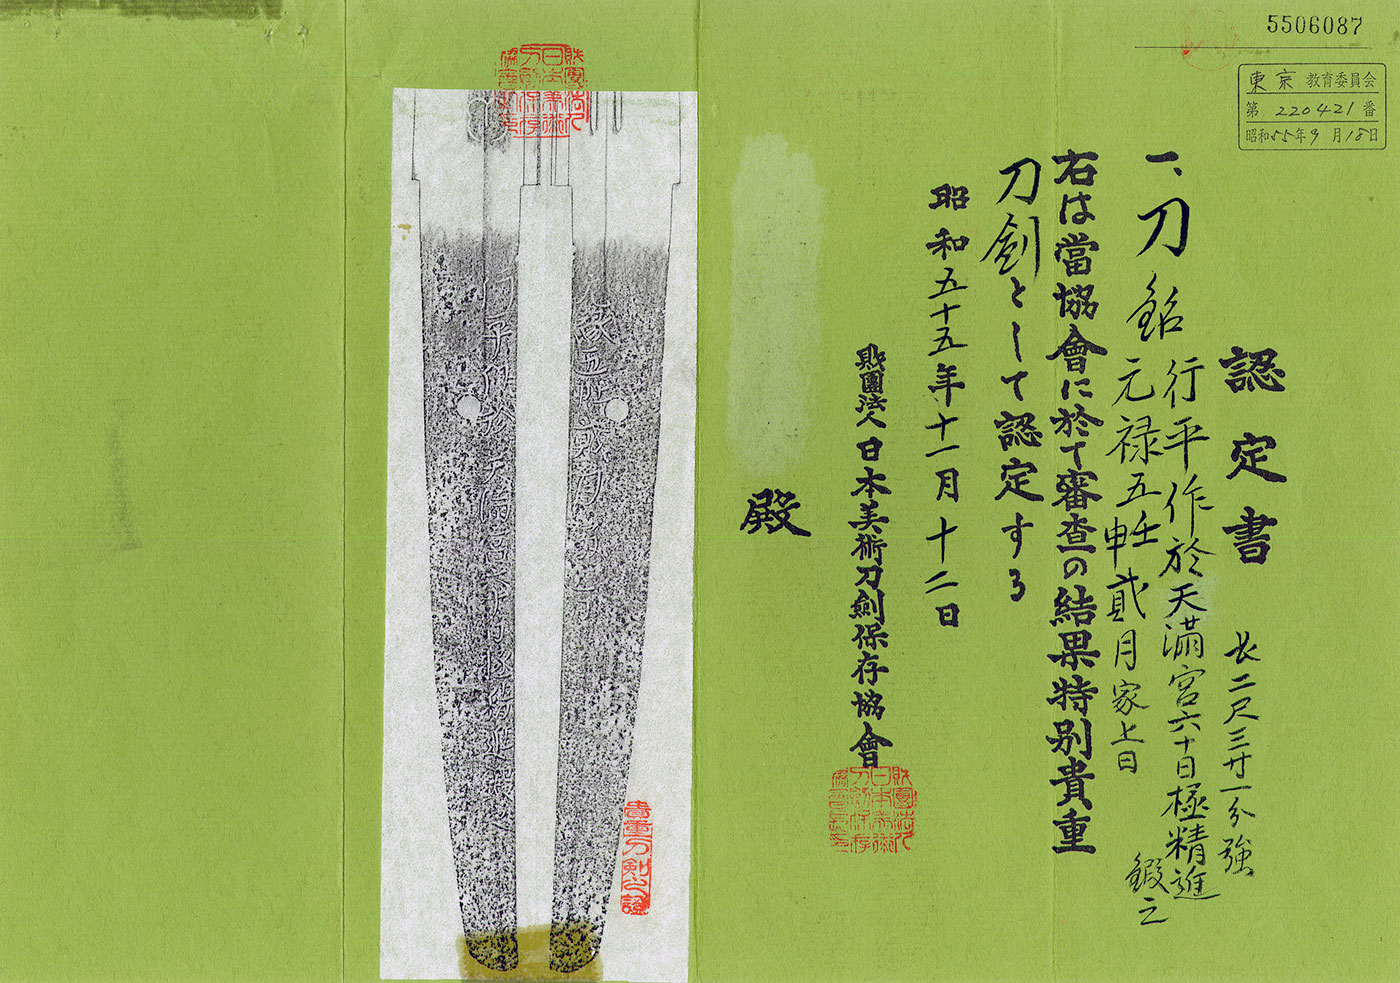 5506087
東京教育委員会
第 220421 番
昭和55年9月18日
認定書
一、刀 銘 行平作於天満宮六十日極精進鍛之
元禄五壬申貳月家上日
長二尺三寸一分強
右は當協會に於て審査の結果特別貴重
刀劍として認定する
昭和五十五年十一月十二日
財團法人日本美術刀劍保存協會
殿
財團法人日本美術刀劍保存協會
貴重刀剣之證